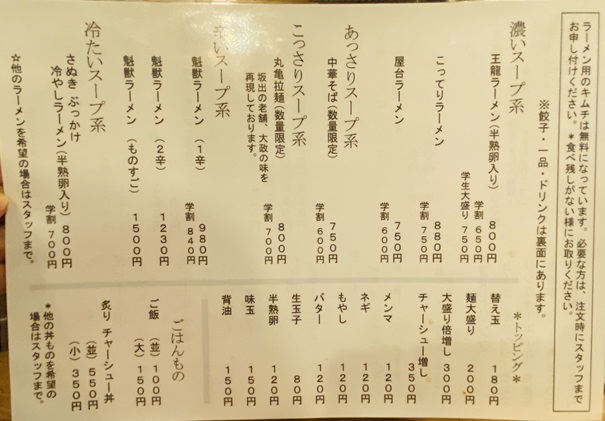 ラーメン用のキムチは無料になっています。必要な方は、注文時にスタッフまで
お申し付けください。＊食べ残しがない様にお取りください。
※餃子・一品・ドリンクは裏面にあります。
濃いスープ系
王龍ラーメン（半熟卵入り） 800円
学割 650円
学生大盛り 750円
こってりラーメン 880円
学割 750円
屋台ラーメン 750円
学割 600円
あっさりスープ系
中華そば（数量限定） 750円
学割 600円
こっさりスープ系
丸亀拉麺（数量限定） 800円
坂出の老舗、大政の味を 学割 700円
再現しております。
辛いスープ系
魁獣ラーメン（1辛） 980円
学割 840円
魁獣ラーメン（2辛） 1230円
魁獣ラーメン（ものすご） 1500円
冷たいスープ系
さぬき ぶっかけ
冷やしラーメン（半熟卵入り） 800円
学割 700円
☆他のラーメンを希望の場合はスタッフまで。
＊トッピング＊
替え玉 180円
麺大盛り 200円
大盛り倍増し 300円
チャーシュー増し 350円
メンマ 120円
ネギ 120円
もやし 120円
バター 120円
生玉子 80円
半熟卵 120円
味玉 150円
背油 150円
ごはんもの
ご飯（並） 100円
（大） 150円
炙り チャーシュー丼
（並） 550円
（小） 350円
＊他の丼ものを希望の
場合はスタッフまで。